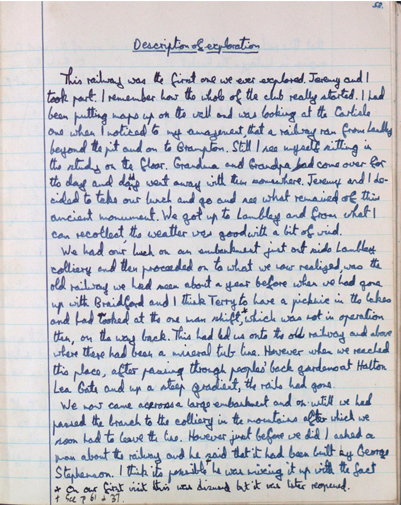 52.
Description of exploration
This railway was the first one we ever explored. Jeremy and I
took part. I remember how the whole of the club really started. I had
been putting maps up on the wall and was looking at the Carlisle
one when I noticed to my amazement, that a railway ran from Lambley
beyond the pit and on to Brampton. Still I see myself sitting in
the study on the floor. Grandma and Grandpa had come over for
the day and went away with them somewhere. Jeremy and I de-
cided to take our lunch and go and see what remained of this
ancient monument. We got up to Lambley and from what I
can recollect the weather was good with a bit of wind.
We had our lunch on an embankment just out side Lambley
colliery and then proceeded on to what we now realized, was the
old railway we had seen about a year before when we had gone
up with Braidford and I think Terry to have a picknic in the lakes
and had looked at the one man shift, which was not in operation
then, on the way back. This had led us onto the old railway and above
where there had been a mineral tub line. However when we reached
this place, after passing through peoples back gardens at Halton
Lea Gate and up a steep gradient, the rails had gone.
We now came across a large embankment and on until we had
passed the branch to the colliery in the mountains after which we
soon had to leave the line. However just before we did I asked a
man about the railway and he said that it had been built by George
Stephenson. I think its possible he was mixing it up with the fact
* On our first visit this was disused but it was later reopened.
† See p 61 & 37.